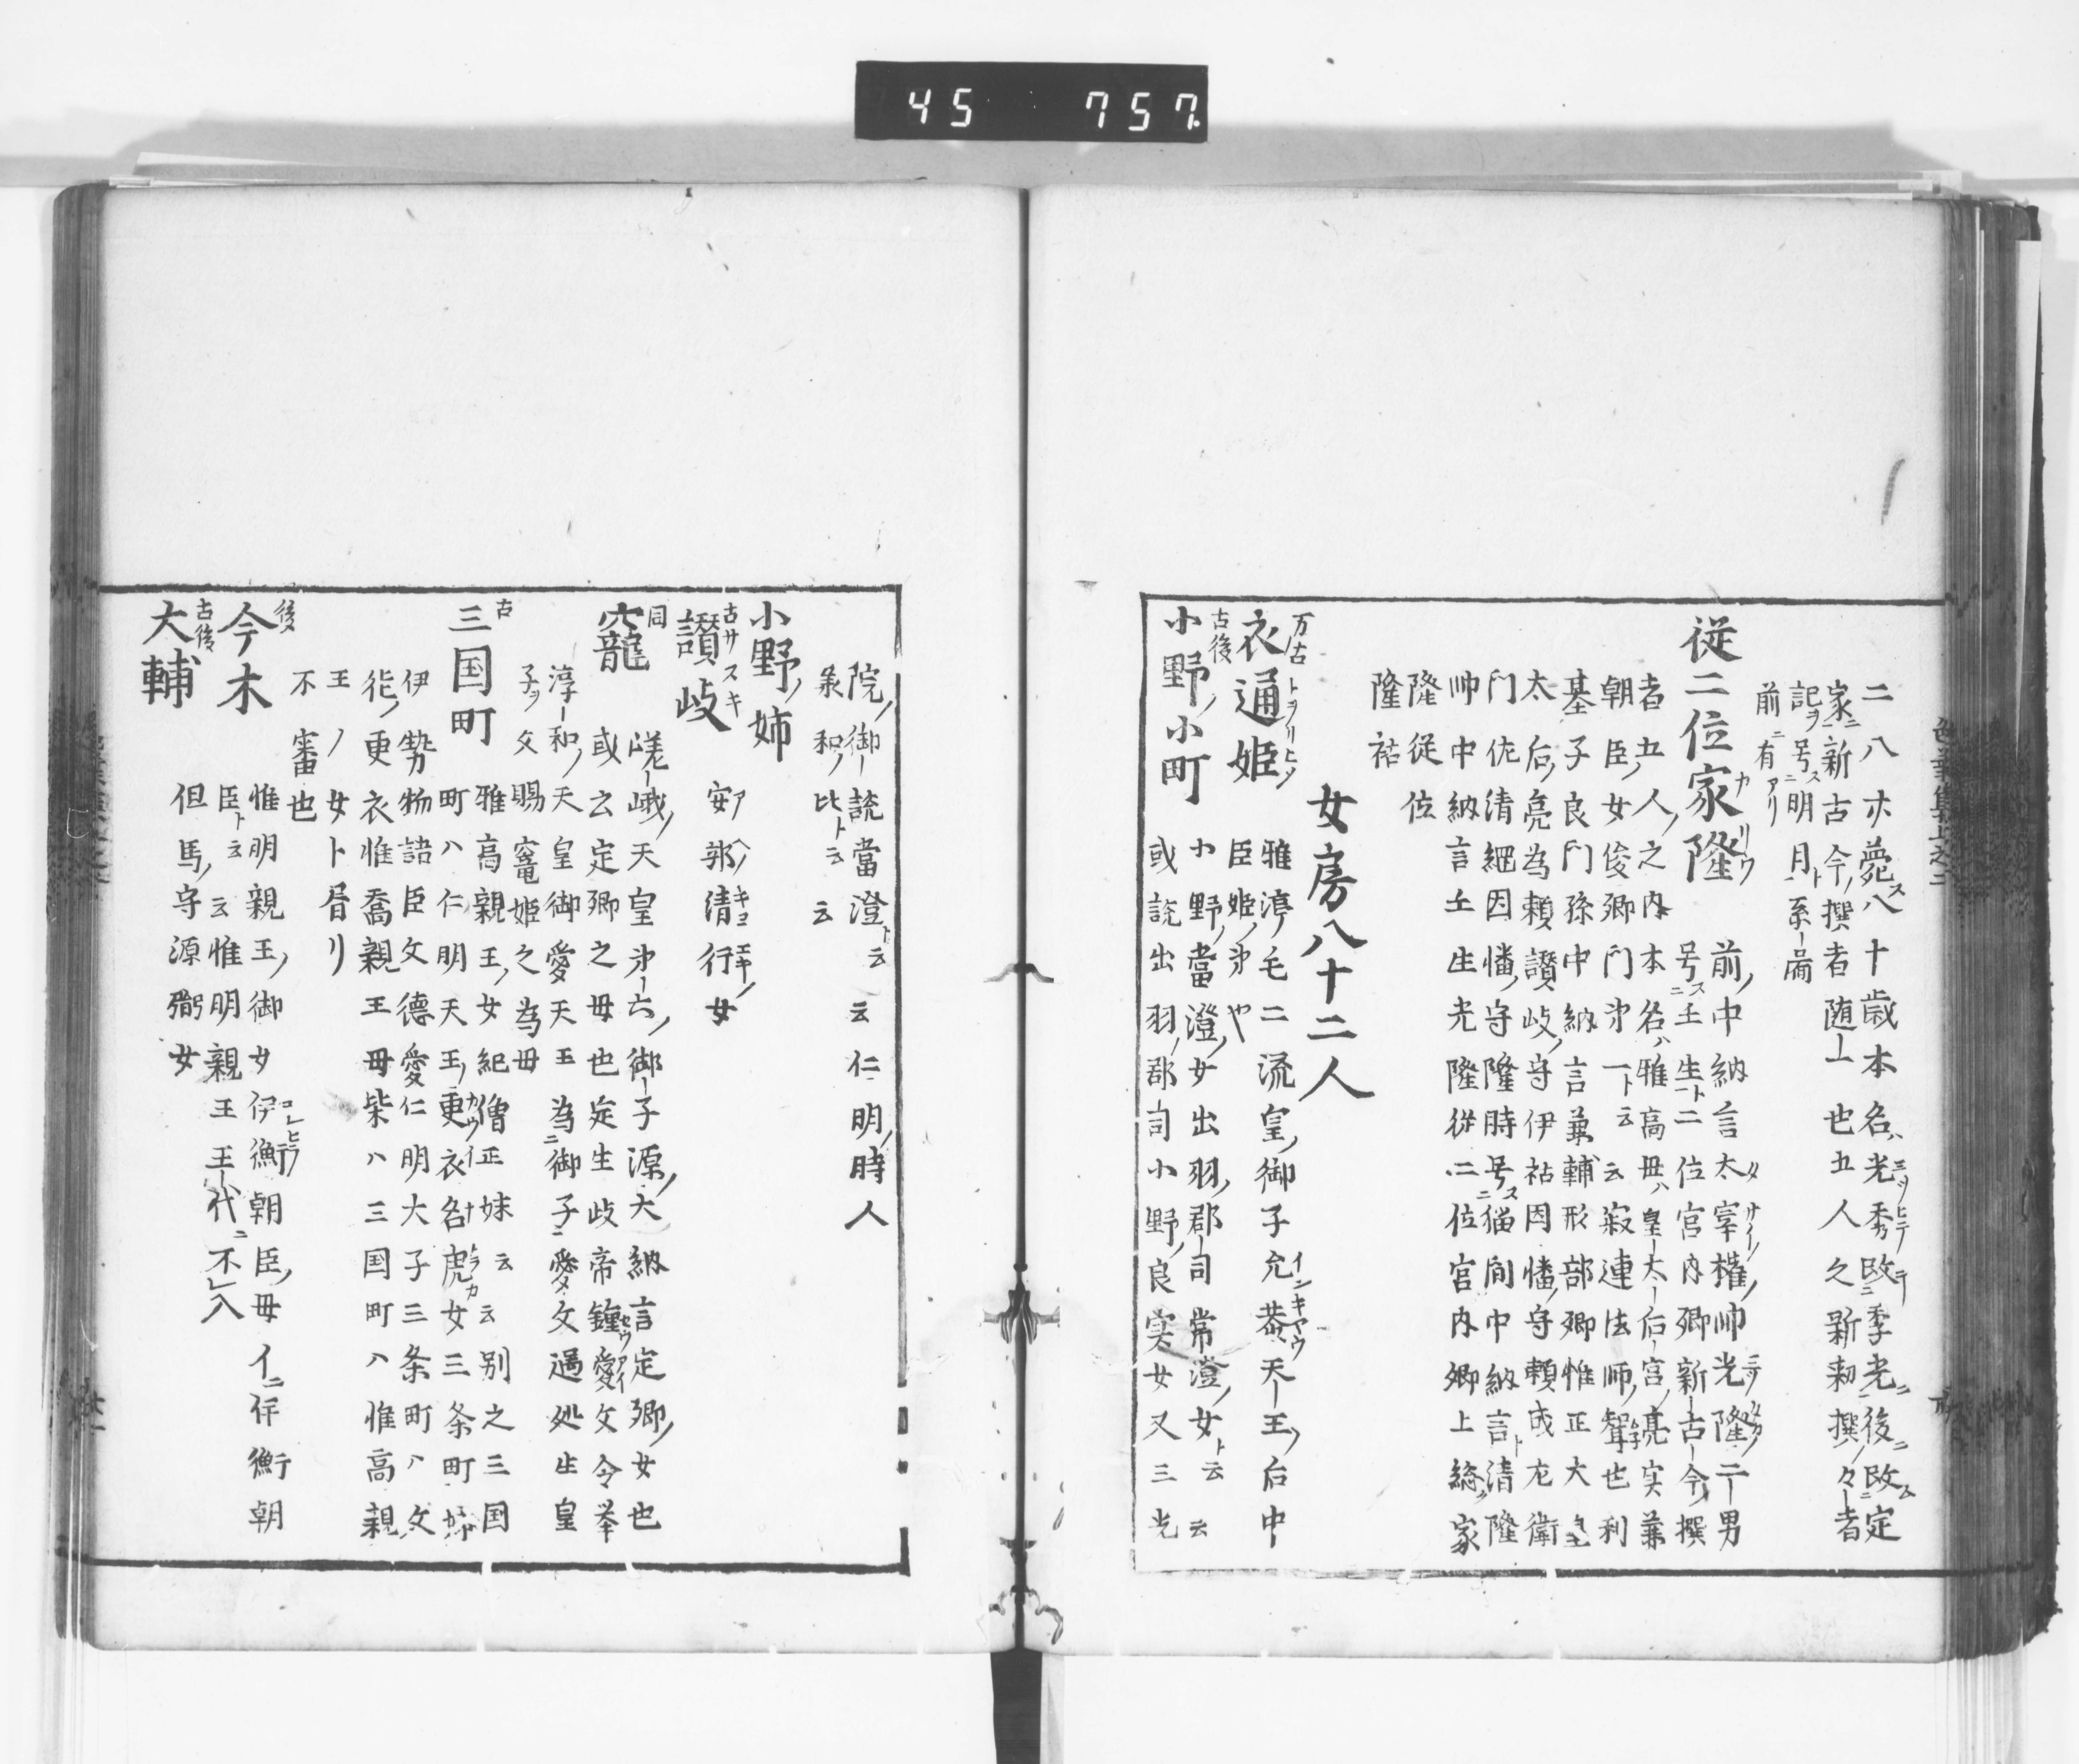 45 757
二八亦薨ス八十歳本名ハ光秀改ニ季光ニ後ニ改ム定
家ニ新古今ノ撰者随一也五人之新勅撰ノ々者
記ヲ号ス明月ト系
前ニ有アリ
従二位家隆
前ノ中納言太宰権ノ帅光隆ノ二男
号ス壬生ト二位宮内卿新古今撰
者五人ノ之内本名ハ雅高母ハ皇太后宮ノ亮実兼
朝臣ノ女俊卿門弟一ト云云寂連法師ノ聟也利
基子良門孫中納言兼輔形部卿惟正大
太后ノ亮為頼讃岐ノ守伊祐因幡ノ守頼成左衛
門佐清綱因幡ノ守隆時号ス猫間中納言ト清隆
帅中納言壬生光隆従二位宮内卿上総ノ家
隆従位
隆祐
女房八十二人
万古
衣通姫
雅渟毛二流皇ノ御子允恭天王ノ后中
臣姫ノ弟や
古後
小野ノ小町
小野ノ當澄ノ女出羽ノ郡司常澄ノ女ト云云
或説出羽ノ郡司小野ノ良実女又三光
院ノ御説當澄ト云云仁明ノ時人
彖和ノ比ト云云
小野ノ姉
古サスキ
讃岐
安部清行ノ女
同
寵
嵯峨ノ天皇第六ノ御子源ノ大納言定卿ノ女也
或云定卿之母也定生岐帝鐘愛文令挙
淳和ノ天皇御愛天王為ニ御子ニ愛文過処生皇
子ヲ文賜竃姫之為母
古
三国町
雅高親王ノ女紀僧正妹云云別之三国
町ハ仁明天王ノ更衣名虎女三条町姉
伊勢物語臣文徳愛仁明大子三条町ハ文
徳ノ更衣惟喬親王母柴ハ三国町ハ惟高親
王ノ女ト見リ
不審也
後
今木
惟明親王ノ御女伊衡朝臣ノ母イニ伊衡朝
臣ト云云惟明親王王代ニ不レ入
古後
大輔
但馬ノ守源弼女